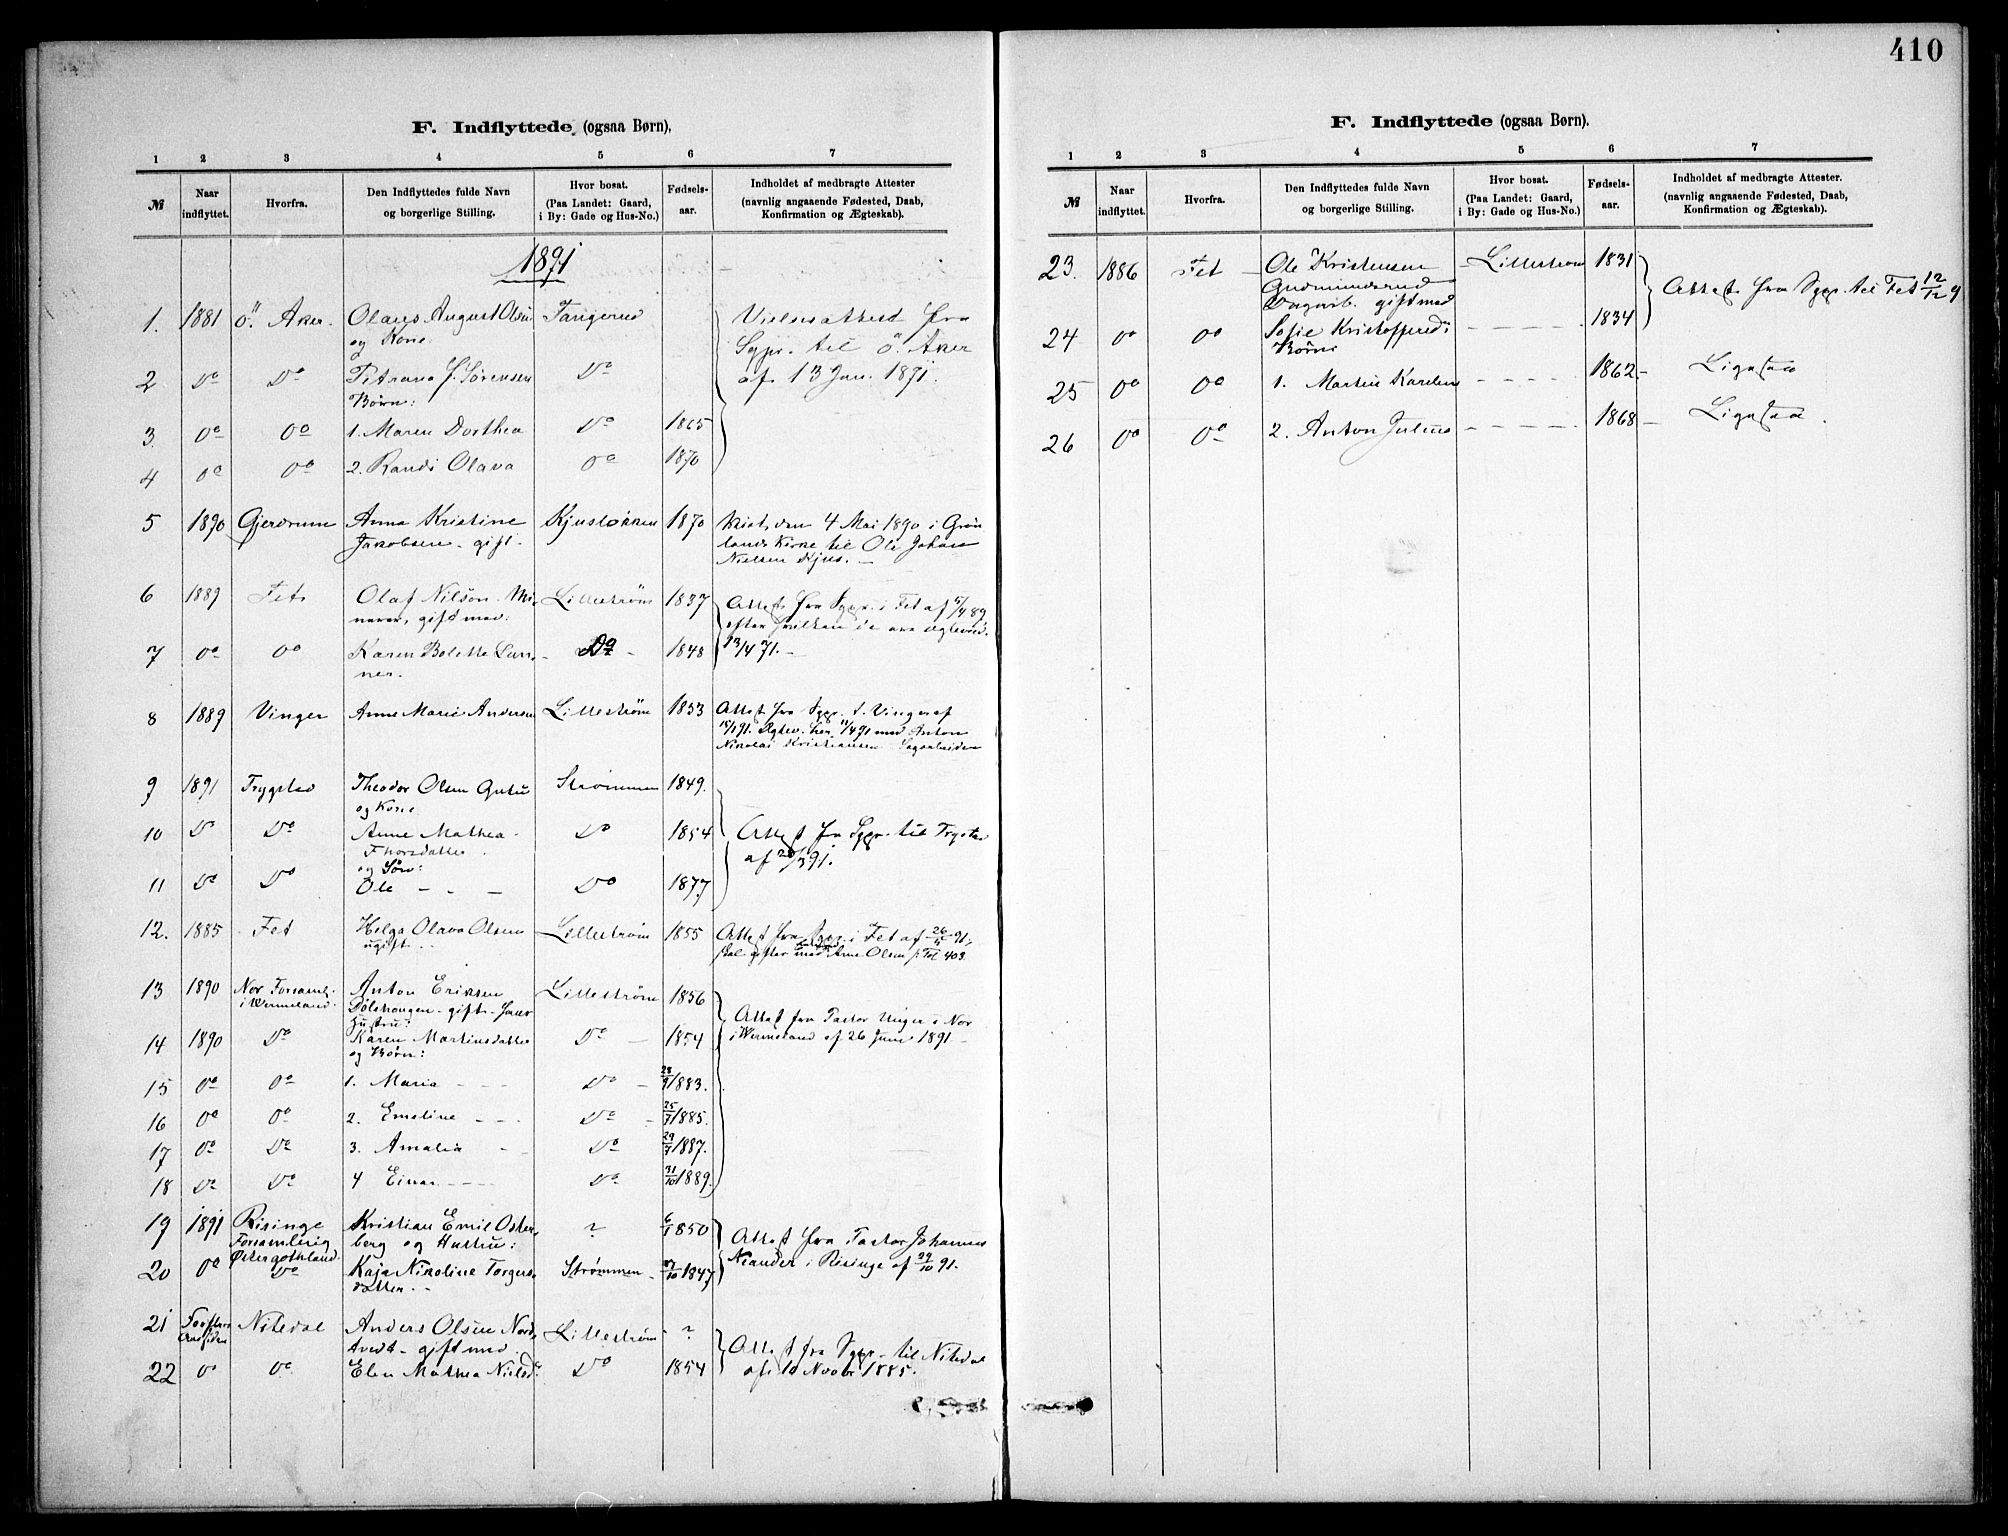 410
F. Indflyttede (ogsaa Børn),
1 2 3 4 5 6 7
№ Naar indflyttet. Hvorfra. Den Indflyttedes fulde Navn og borgerlige Stilling. Hvor bosat. (Paa Landet: Gaard, i By: Gade og Hus-No.) Fødsels-aar. Indholdet af medbragte Attester (navnlig angaaende Fødested, Daab, Konfirmation og Ægteskab).
1891
1. 1881 Ö. Aker. Olaus August Olsen Vielsesattest fra
og Kone Sgpr. til Ö. Aker
2 Do Do Sørensen Do af 13 Jan. 1891.
Børn:
3 Do Do 1. Maren Dorthea Do 1865
4 Do Do 2. Randi Olava Do 1870
5 1890 Gjerdrum Anna Kristine Kjusløkken 1870 Viet den 4 Mai 1890 i Grøn
Jakobsen - gift - lands Kirke til Ole Johan
Nielsen Kjus. -
6 1889 Fet Olaf Nilson Lillestrøm 1837 Attest fra Sgpr. i Fet af 5/4 89
gift med: efter hvilken de
7 Do Do Karen Bolette Do 1848 13/4 71. -
8 1889 Vinger Anne Marie Andersen Lillestrøm 1853 Attest fra Sgpr. t. Vinger af
15/1 91. Ægtev. her 11/4 91 med Anton
Nikolai Kristiansen Sagarbeider
9 1891 Trygstad Theodor Olsen Strømmen 1849.
og Kone
10 Do Do Anne Mathea Do 1854 Attest fra Sgpr. til Trygstad
Thorsdatter af 28/3 91.
og Søn:
11 Do Do Ole - - - Do 1877
12. 1885 Fet Helga Olava Olsen Lillestrøm 1855 Attest fra Sgpr. i Fet af 26/5 91,
ugift. skal giftes med Arne Olsen Fol 403.
13 1890 Nor Forsaml. Anton Eriksen Lillestrøm 1856
i Wermeland. gift - Attest fra Pastor Unger i Nor
Hustru:
14 1890 Do Karen Martinsdatter Do 1854 i Wermeland af 26 Juni 1891 -
og Børn:
15 Do Do 1. Maria Do 28/9 1883.
16 Do Do 2. Emeline Do 25/7 1885.
17 Do Do 3. Amalia Do 29/7 1887.
18 Do Do 4 Einar Do 31/10 1889.
19 1891 Risinge Kristian Emil Oster, ? 6/1 1850 Attest fra Pastor Johannes
Forsamling berg og Hustru:
Østergothland
20 Do Do Kaja Nikoline Torgers, Strømmen 27/10 1847 Neander i Risinge af 29/10 91.
datter.
21 Nitedal Anders Olsen Nord, Lillestrøm ? Attest fra Sgpr. til Nitedal
tvedt - gift med
22 Do Do Elen Mathea Nielsd. Do 1854 af 10 Novbr 1885.
F. Indflyttede (ogsaa Børn).
1 2 3 4 5 6 7
№ Naar indflyttet. Hvorfra. Den Indflyttedes fulde Navn og borgerlige Stilling. Hvor bosat. (Paa Landet: Gaard, i By: Gade og Hus-No.) Fødsels-aar. Indholdet af medbragte Attester. (navnlig angaaende Fødested, Daab, Konfirmation og Ægteskab).
23. 1886 Fet Ole Kristensen Lillestrøm 1831
Gudmundsrud Attest fra Sgpr. til Fet 12/12 9
gift med
24 Do Do Sofie Kristoffersd: 1834
Børn
25 Do Do 1. Martin Karelius 1862 - Ligesaa
26 Do Do 2. Anton Julius 1868 - Ligesaa.